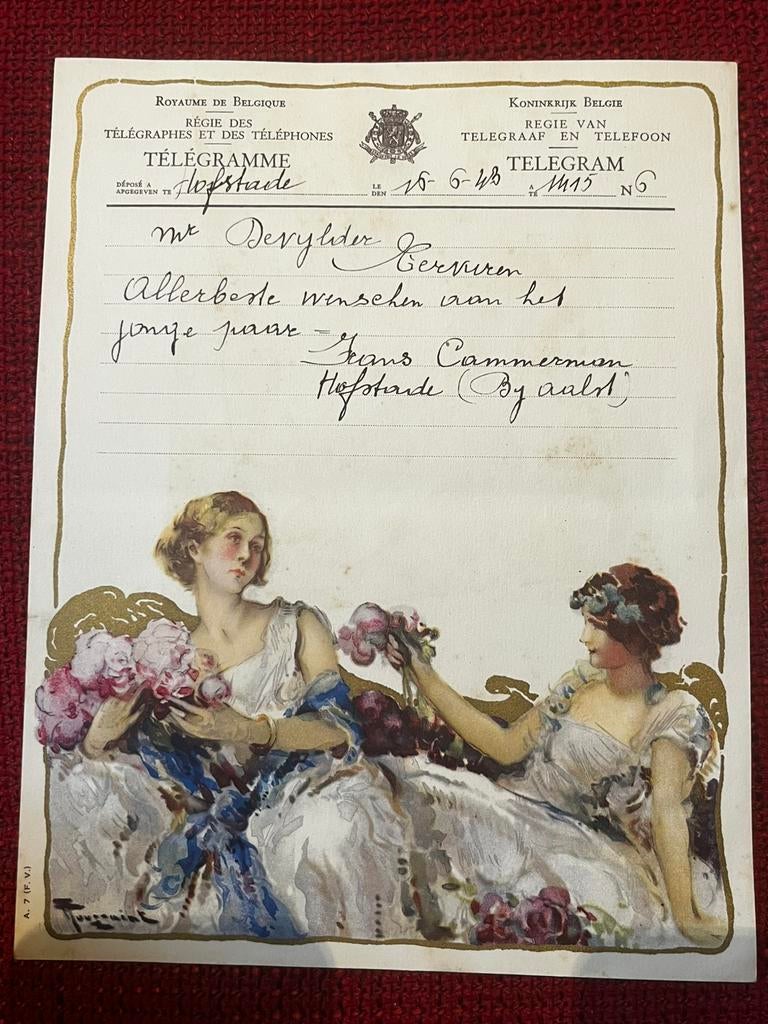 ROYAUME DE BELGIQUE
RÉGIE DES
TÉLÉGRAPHES ET DES TÉLÉPHONES
TÉLÉGRAMME
KONINKRIJK BELGIE
REGIE VAN
TELEGRAAF EN TELEFOON
TELEGRAM
DÉPOSÉ A
AFGEGEVEN TE Hofstade LE
DEN 16-6-48 A
TE 1415 N 6
Mr Devylder
Tervuren
Allerbeste wenschen aan het
jonge paar =
Frans Cammerman
Hofstade (By aalst)
A. 7 (F. V.)